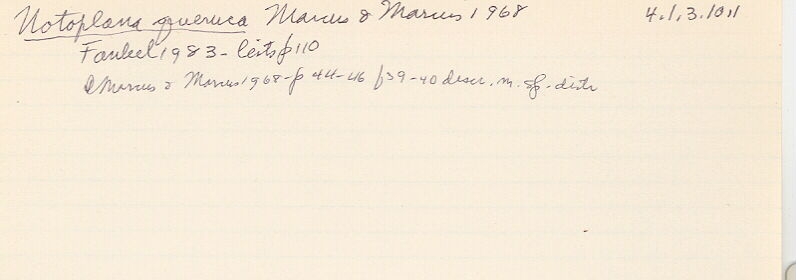 Notoplana queruca Marcus & Marcus 1968 4.1.3.10.1
Faubel 1983 - lists p 110
Marcus & Marcus 1968 - p 44-46 f 39-40 descr. n. sp. - distr